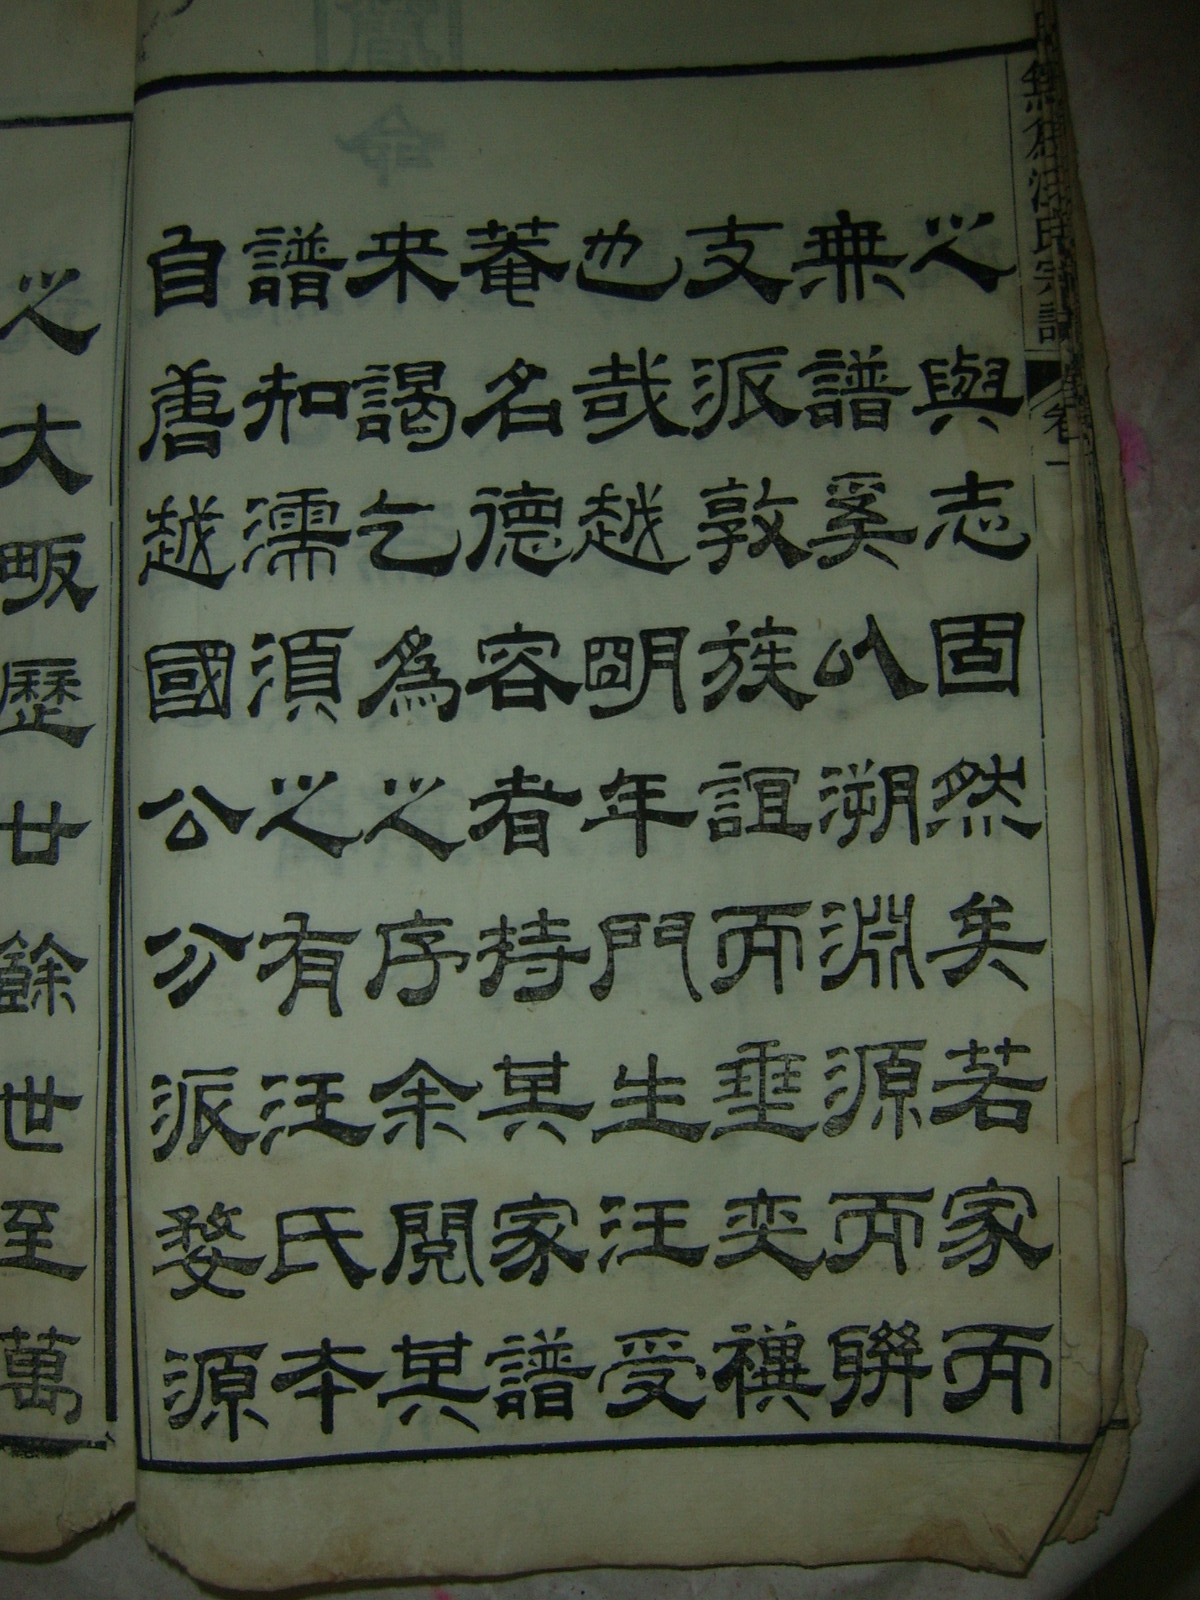 之與志固然矣若家而
無譜奚以溯淵源而聯
支派敦族誼而垂奕禩
也哉越明年門生汪受
菴名德容者持其家譜
来謁乞為之序余閱其
譜知濡須之有汪氏本
自唐越國公分派婺源
之大畈歷廿餘世至萬
汪氏宗譜
卷一